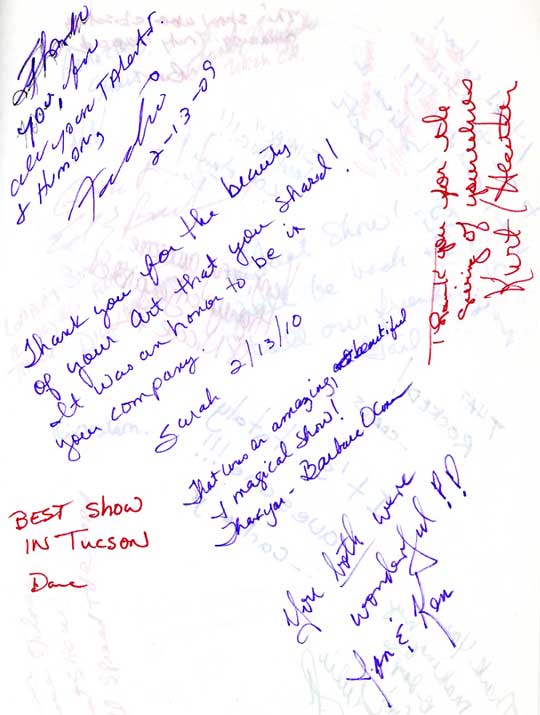 Thank
you, for
all your TAlents.
& Humong
2-13-09
Thank you for the
giving of yourselves
Kurt / Heather
Thank you for the beauty
of your art that you shared!
It was an honor to be in
your company.
Sarah 2/13/10
That was an amazing, beautiful
& magical show!
Thankyou - Barbara
BEST SHOW
IN TUCSON
Dave
You both were
wonderful!!
Jan & Ken